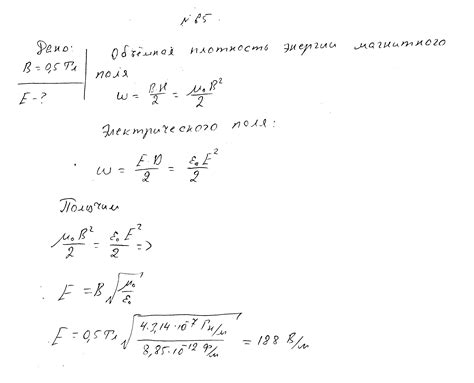 №85.
Дано:
B = 0,5 Тл
E - ?
Объёмная плотность энергии магнитного
поля
w = BH/2 = μ₀B²/2
Электрического поля:
w = E D/2 = ε₀E²/2
Получим
μ₀B²/2 = ε₀E²/2 =>
E = B√(μ₀/ε₀)
E = 0,5 Тл √(4·3,14·10⁻⁷ Гн/м / 8,85·10⁻¹² Ф/м) = 188 В/м